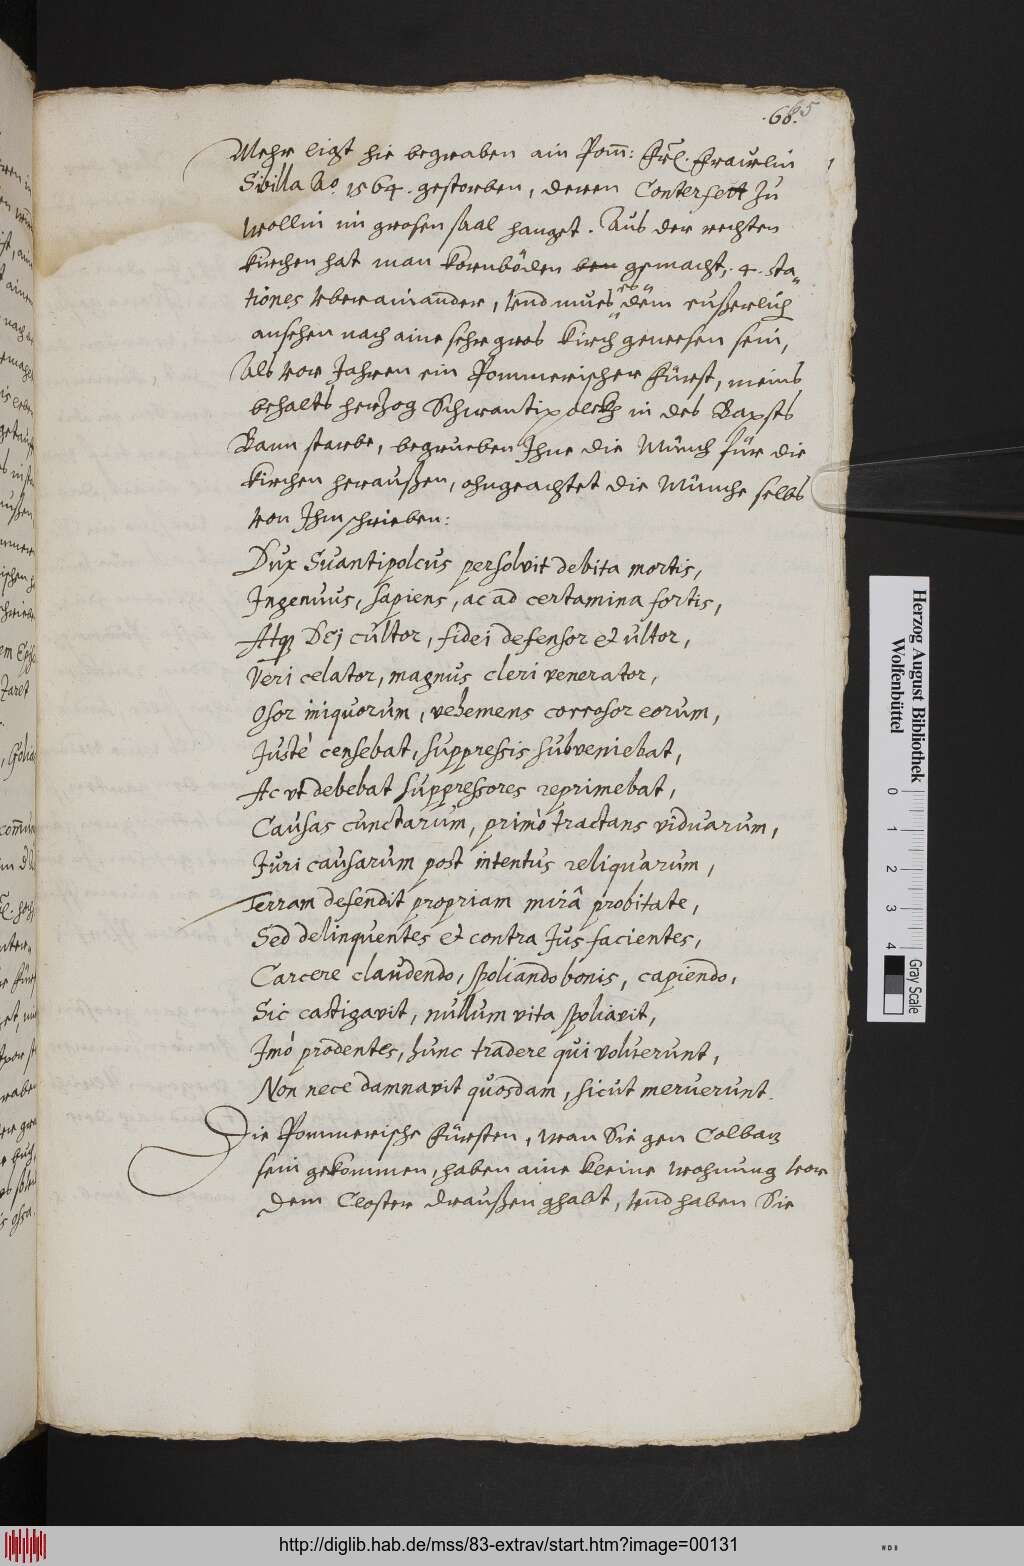 .66. 65
Mehr ligt hie begraben ain Pom̃: Frl. Fraẅlin
Sibilla Ao 1564. gestorben, deren Conterfett zu
Wollin im grosen saal hanget. Aus der rechten
kirchen hat man kornböden gemacht, 4. sta-
tiones vberainander, Vnd mues es dem eusserlich
ansehen nach aine sehr gros kirch gewesen sein,
Als vor Jahren ein Pommerischer Fürst, meins
behalts herzog Schwantipolckh in des Bapsts
Bann starbe, begrueben Ihne die Münch für die
kirchen heraussen, ohngeachtet die Münche selbs
von Ihm schrieben:
Dux Suantipolcus persolvit debita mortis,
Ingenuus, sapiens, ac ad certamina fortis,
Atq3 Dei cultor, fidei defensor et ultor,
Veri celator, magnus cleri venerator,
Osor iniquorum, vehemens corrosor eorum,
Justè censebat, suppressis subveniebat,
Ac vt debebat suppressores reprimebat,
Causas cunctarum, primò tractans viduarum,
Juri causarum post intentus reliquarum,
Terram defendit propriam mirâ probitate,
Sed delinquentes et contra Jus facientes,
Carcere claudendo, spoliando bonis, capiendo,
Sic castigavit, nullum vita spoliavit,
Imò prodentes, hunc tradere qui voluerunt,
Non nece damnavit quosdam, sicut meruerunt.
Die Pommerische Fürsten, wan Sie gen Colbaz
sein gekommen, haben aine kleine wohnung vor
dem Closter draussen ghabt, Vnd haben Sie
Herzog August Bibliothek
Wolfenbüttel
0 1 2 3 4
Gray Scale
http://diglib.hab.de/mss/83-extrav/start.htm?image=00131
WDB